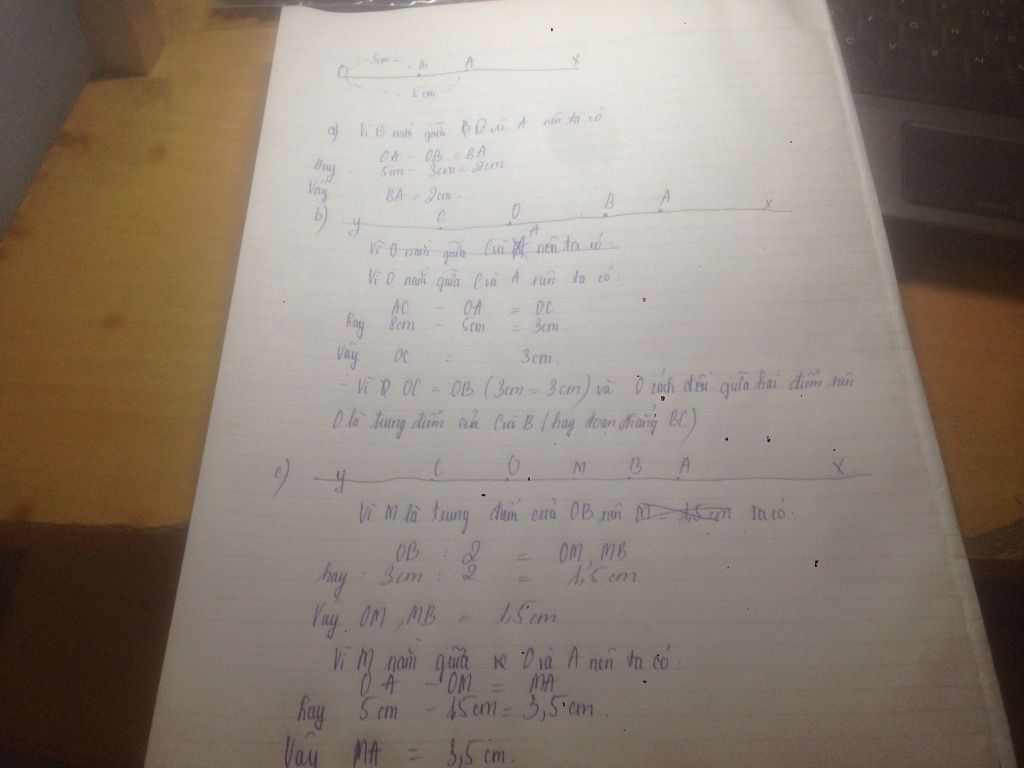 3cm
O B A x
5cm
a) Vì B nằm giữa O và A nên ta có
OA - OB = BA
Hay 5cm - 3cm = 2cm
Vậy BA = 2cm
b) y C O B A x
A
Vì O nằm giữa C và nên ta có:
Vì O nằm giữa C và A nên ta có:
AC - OA = OC
hay 8cm - 5cm = 3cm
Vậy OC = 3cm.
- Vì OC = OB (3cm = 3cm) và O cách đều giữa hai điểm nên
O là trung điểm của C và B (hay đoạn thẳng BC)
c) y C O M B A x
Vì M là trung điểm của OB nên M = 1,5cm ta có:
OB : 2 = OM, MB
hay : 3cm : 2 = 1,5cm
Vậy OM, MB = 1,5cm
Vì M nằm giữa O và A nên ta có:
OA - OM = MA
hay 5cm - 1,5cm = 3,5cm.
Vậy MA = 3,5cm.